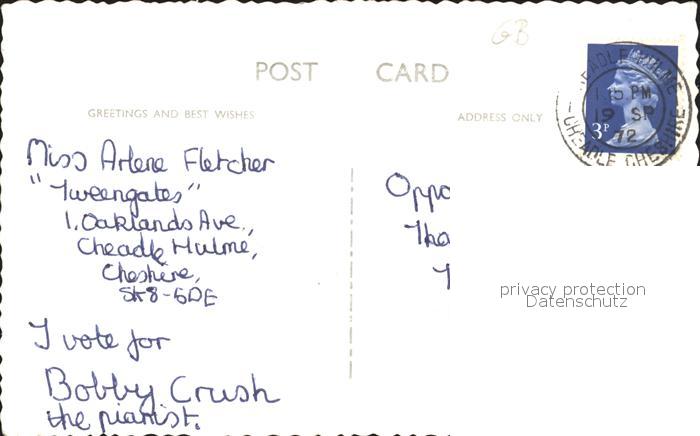 GB
POST CARD
GREETINGS AND BEST WISHES
ADDRESS ONLY
CHEADLE HULME
1.15 PM
19 SP
72
CHEADLE CHESHIRE
3P
Miss Arlene Fletcher
"Tweengates"
1, Oaklands Ave.,
Cheadle Hulme,
Cheshire,
SK8-5DE
I vote for
Bobby Crush
the pianist.
Oppo
Tho
privacy protection
Datenschutz